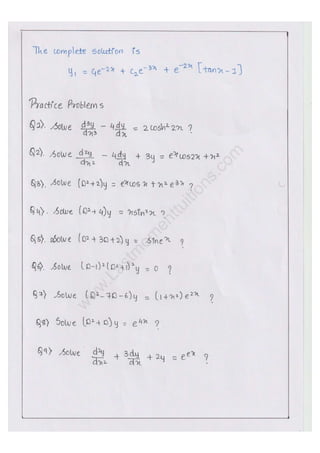 The complete solution is
y₁ = C₁e⁻²ˣ + C₂e⁻³ˣ + e⁻²ˣ [tanx - 1]
Practice Problems
Q1). Solve d³y/dx³ - 4dy/dx = 2cosh²2x ?
Q2). Solve d²y/dx² - 4dy/dx + 3y = eˣcos2x + x²
Q3). Solve (D²+2)y = eˣcosx + x²e³ˣ ?
Q4). Solve (D²+4)y = xsin²x ?
Q5). Solve (D²+3D+2)y = sineˣ ?
Q6). Solve (D-1)²(D²+1)²y = 0 ?
Q7) Solve (D³-7D-6)y = (1+x²)e²ˣ ?
Q8) Solve (D²+D)y = e⁴ˣ ?
Q9) Solve d²y/dx² + 3dy/dx + 2y = e^eˣ ?
www.Lastmomenttuitions.com